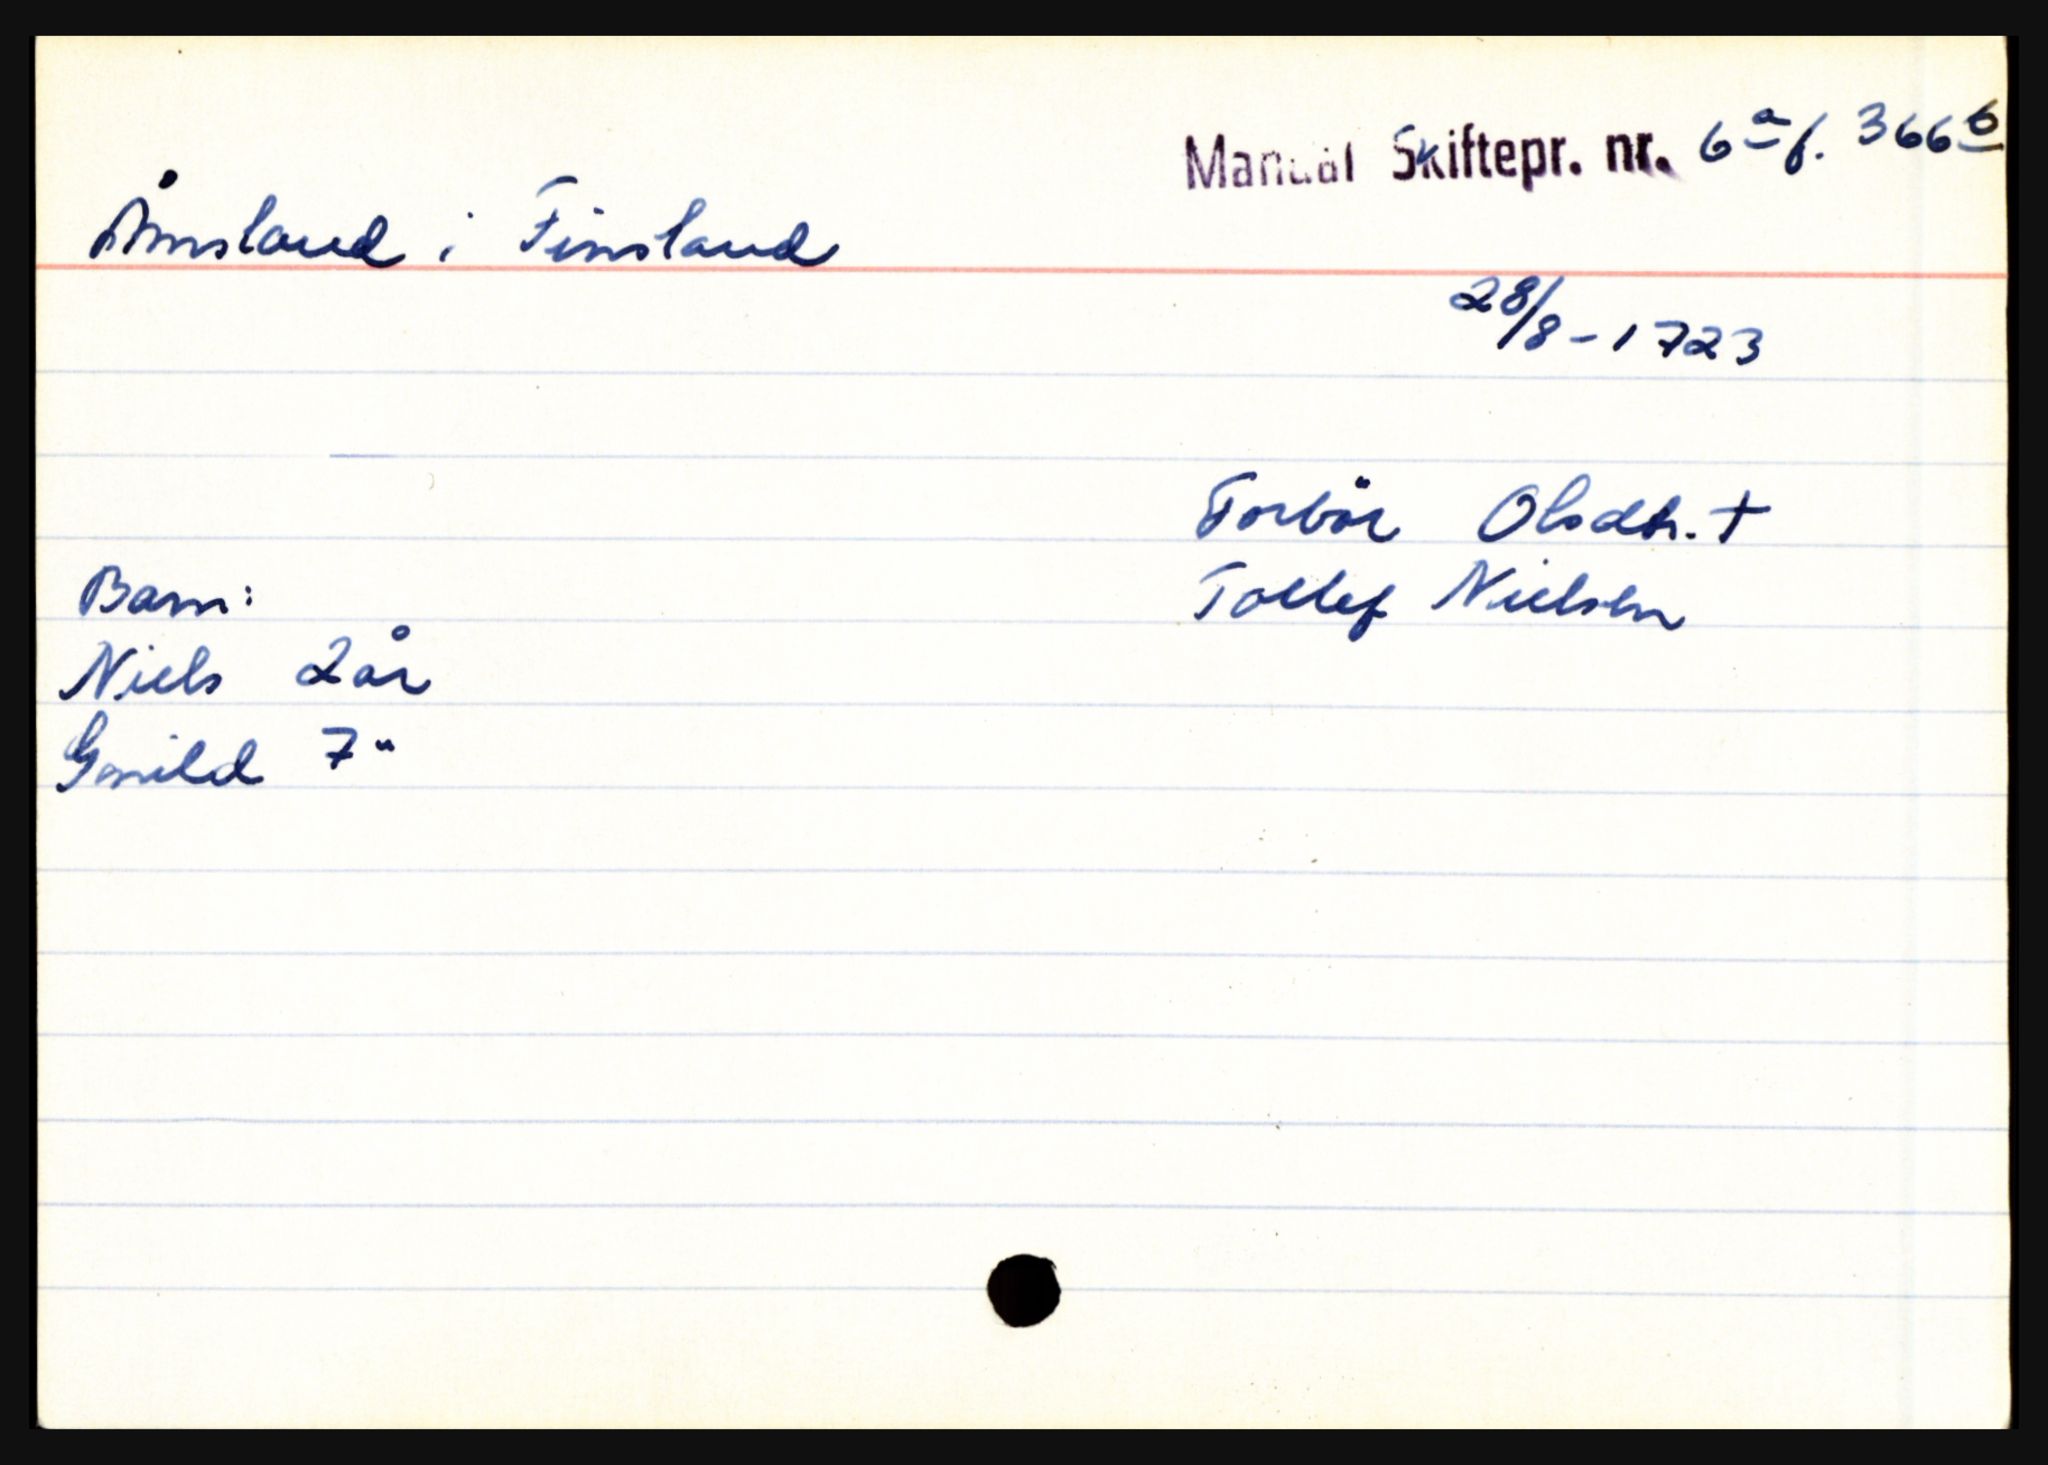 Manual Skiftepr. nr. 6a f. 366b
Åmsland i Finsland
28/8-1723
Torbör Olsdtr. †
Tollef Nielsen
Barn:
Niels 2 år
Gunild 7 "